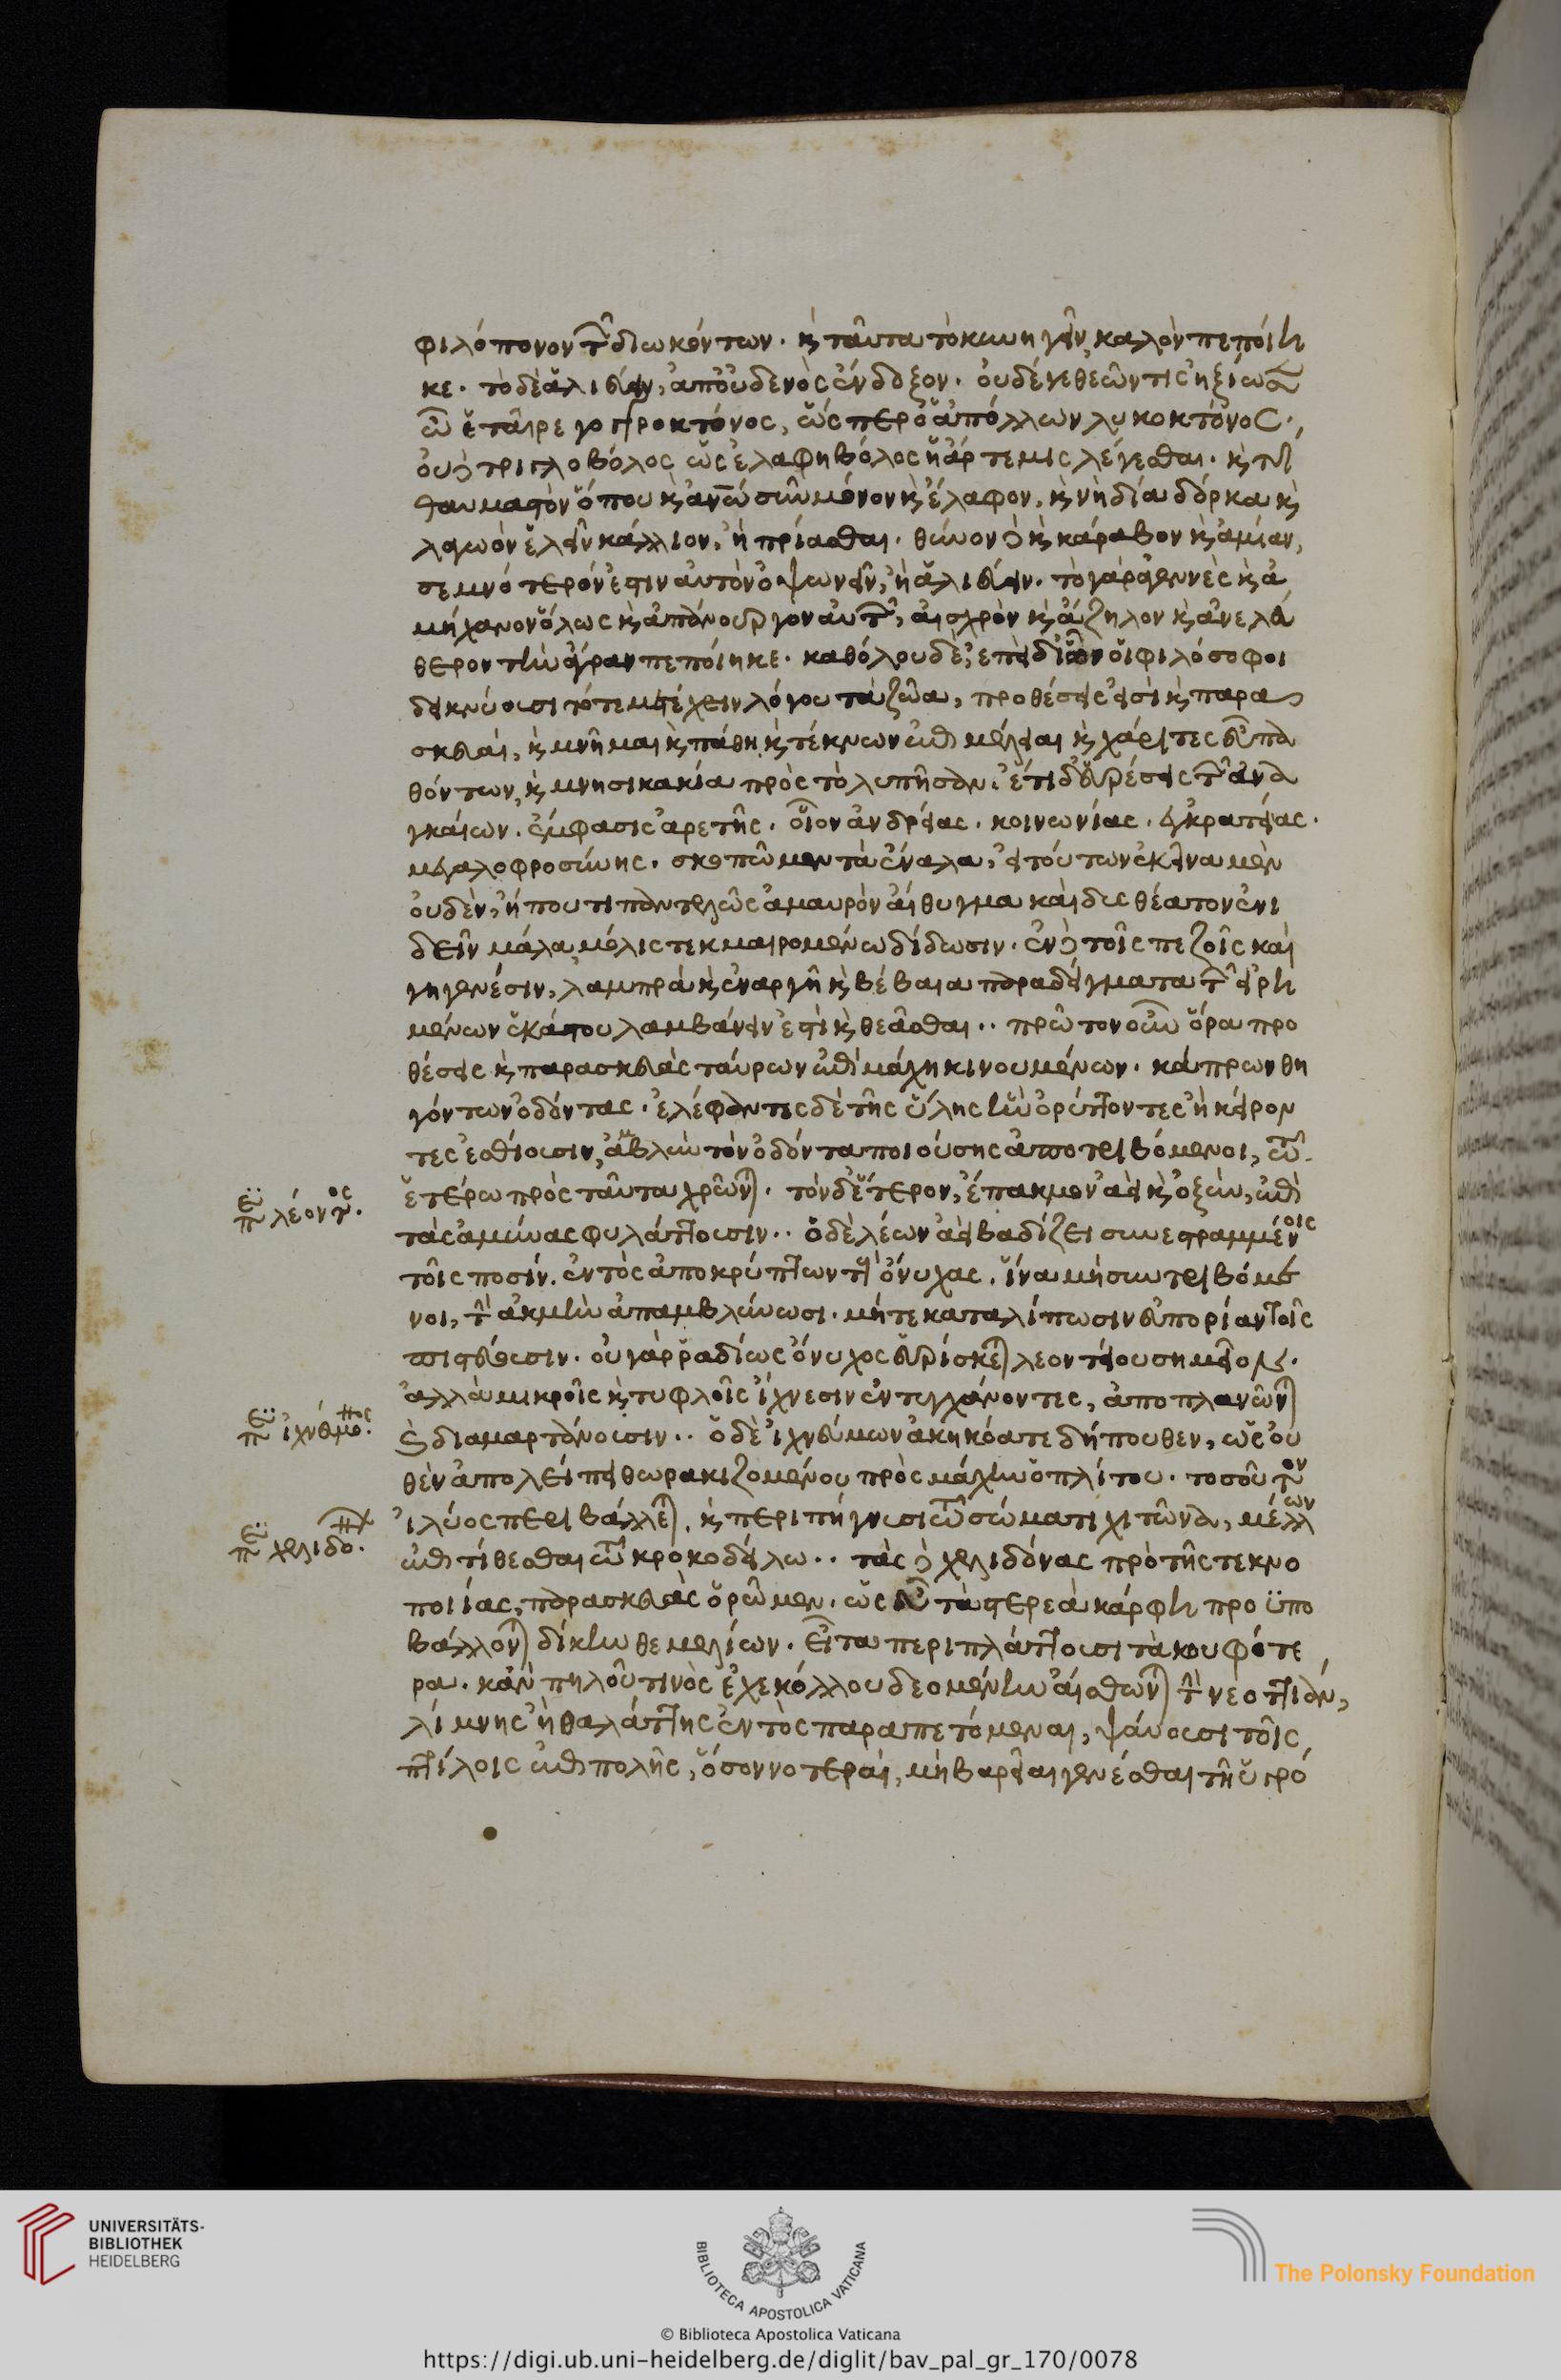 φιλόπονον τῶν διωκόντων. καὶ ταῦτα τὸ κυνηγεῖν καλὸν πεποίη
κε. τὸ δὲ ἁλιεύειν, ἀπ' οὐδενὸς ἔνδοξον. οὐδέ γε θεῶν τις ἠξίωσεν
ὦ ἑταῖρε γογγροκτόνος, ὥσπερ ὁ ἀπόλλων λυκοκτόνος.,
οὐδὲ τριγλοβόλος ὡς ἐλαφηβόλος ἡ ἄρτεμις λέγεσθαι. καὶ τί
θαυμαστὸν ὅπου καὶ ἀνθρώπῳ σῦν μόνον καὶ ἔλαφον, καὶ νὴ δία δόρκα καὶ
λαγωὸν ἑλεῖν κάλλιον, ἢ πρίασθαι. θύννον δὲ καὶ κάραβον καὶ ἀμίαν,
σεμνότερόν ἐστιν αὐτὸν ὀψωνεῖν, ἢ ἁλιεύειν. τὸ γὰρ ἀγεννὲς καὶ ἀ
μήχανον ὅλως καὶ ἀπάνουργον αὐτῶν, αἰσχρὸν καὶ ἄζηλον καὶ ἀνελεύ
θερον τὴν ἄγραν πεποίηκε. καθόλου δὲ, ἐπεὶ δι' ὧν οἱ φιλόσοφοι
δεικνύουσι τό τε μετέχειν λόγου τὰ ζῶα, προθέσεις εἰσὶ καὶ παρα
σκευαί, καὶ μνῆμαι καὶ πάθη, καὶ τέκνων ἐπιμέλειαι καὶ χάριτες εὖ πα
θόντων, καὶ μνησικακία πρὸς τὸ λυπῆσαν. ἔτι δ' εὑρέσεις τῶν ἀνα
γκαίων. ἔμφασις ἀρετῆς. οἷον ἀνδρείας. κοινωνίας. ἐγκρατείας.
μεγαλοφροσύνης. σκοπῶμεν τὰ ἔναλα, εἰ τούτων ἐκεῖνα μὲν
οὐδὲν, ἤ που τι παντελῶς ἀμαυρὸν αἴθυγμα καὶ δυσθέατον ἐνι
δεῖν μάλα μόλις τεκμαιρομένω δίδωσιν. ἐν δὲ τοῖς πεζοῖς καὶ
γηγενέσιν, λαμπρὰ καὶ ἐναργῆ καὶ βέβαια παραδείγματα τῶν εἰρη
μένων ἑκάστου λαμβάνειν ἐστὶ καὶ θεᾶσθαι.. πρῶτον οὖν ὅρα προ
θέσεις καὶ παρασκευὰς ταύρων ἐπὶ μάχη κινουμένων. κάπρων θη
γόντων ὀδόντας. ἐλέφαντες δὲ τῆς ὕλης ἣν ὀρύττοντες ἢ κείρον
τες ἐσθίουσιν, ἀμβλὺν τὸν ὀδόντα ποιούσης ἀποτριβόμενοι, τῶ
ἑτέρω πρὸς ταῦτα χρῶνται. τὸν δ' ἕτερον, ἔπακμον ἀεὶ καὶ ὀξὺν, ἐπὶ
τὰς ἀμύνας φυλάττουσιν.. ὁ δὲ λέων ἀεὶ βαδίζει συνεστραμμένοις
τοῖς ποσίν. ἐντὸς ἀποκρύπτων τοὺς ὄνυχας. ἵνα μὴ συντριβόμε
νοι, τὴν ἀκμὴν ἀπαμβλύνωσι. μή τε καταλίπωσιν εὐπορίαν τοῖς
στιβεύουσιν. οὐ γὰρ ῥαδίως ὄνυχος εὑρίσκεται λεοντείου σημεῖον.
ἀλλὰ μικροῖς καὶ τυφλοῖς ἴχνεσιν ἐντυγχάνοντες, ἀποπλανῶνται
καὶ διαμαρτάνουσιν.. ὁ δὲ ἰχνεύμων ἀκηκόατε δήπουθεν, ὡς οὐ
θὲν ἀπολείπει θωρακιζομένου πρὸς μάχην ὁπλίτου. τοσοῦτον
ἰλύος περιβάλλεται, καὶ περιπήγνυσι τῶ σώματι χιτῶνα, μέλλων
ἐπιτίθεσθαι τῶ κροκοδείλω.. τὰς δὲ χελιδόνας πρὸ τῆς τεκνο
ποιίας, παρασκευὰς ὁρῶμεν. ὡς εὖ τὰ στερεὰ κάρφη προϋπο
βάλλονται δίκην θεμελίων. εἶτα περιπλάττουσι τὰ κουφότε
ρα. κἂν πηλοῦ τινὸς ἐχεκόλλου δεομένην αἴσθωνται τὴν νεοττιὰν,
λίμνης ἢ θαλάττης ἐντὸς παραπετόμεναι, ψάυουσι τοῖς
πτίλοις ἐπιπολῆς, ὅσον νοτεραί, μὴ βαρεῖαι γενέσθαι τῆ ὑγρό
περὶ λέοντος.
περὶ ἰχνεύμονος.
περὶ χελιδόνων.
UNIVERSITÄTS-
BIBLIOTHEK
HEIDELBERG
BIBLIOTECA APOSTOLICA VATICANA
The Polonsky Foundation
© Biblioteca Apostolica Vaticana
https://digi.ub.uni-heidelberg.de/diglit/bav_pal_gr_170/0078